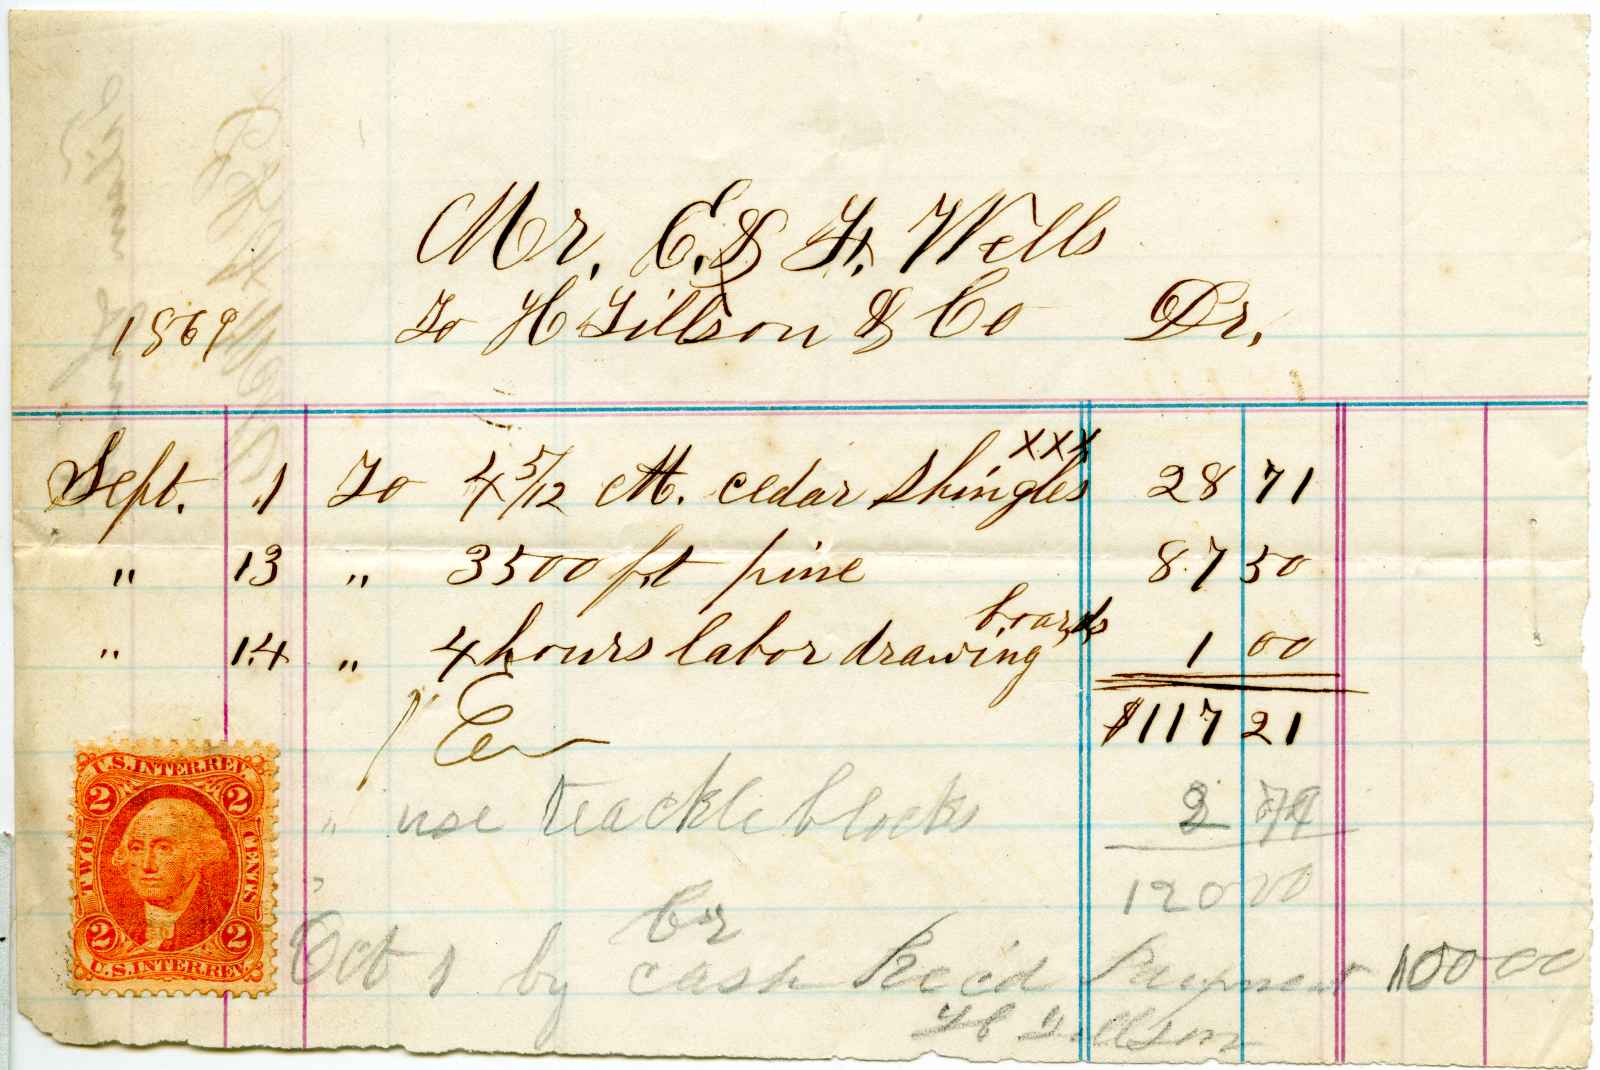 Mr. E. & H. Wells
1869 To H Tillson & Co Dr.
Sept. 1 To 4 5/12 M. cedar shingles xxx 28 71
" 13 " 3500 ft pine 87 50
" 14 " 4 hours labor drawing boards 1 00
$117 21
Cr
" use teackle blocks 2 79
120 00
Cr
Oct 1 by cash Rec'd Payment 100 00
H Tillson
U.S. INTER. REV.
2 2
TWO CENTS
2 2
U.S. INTER. REV.